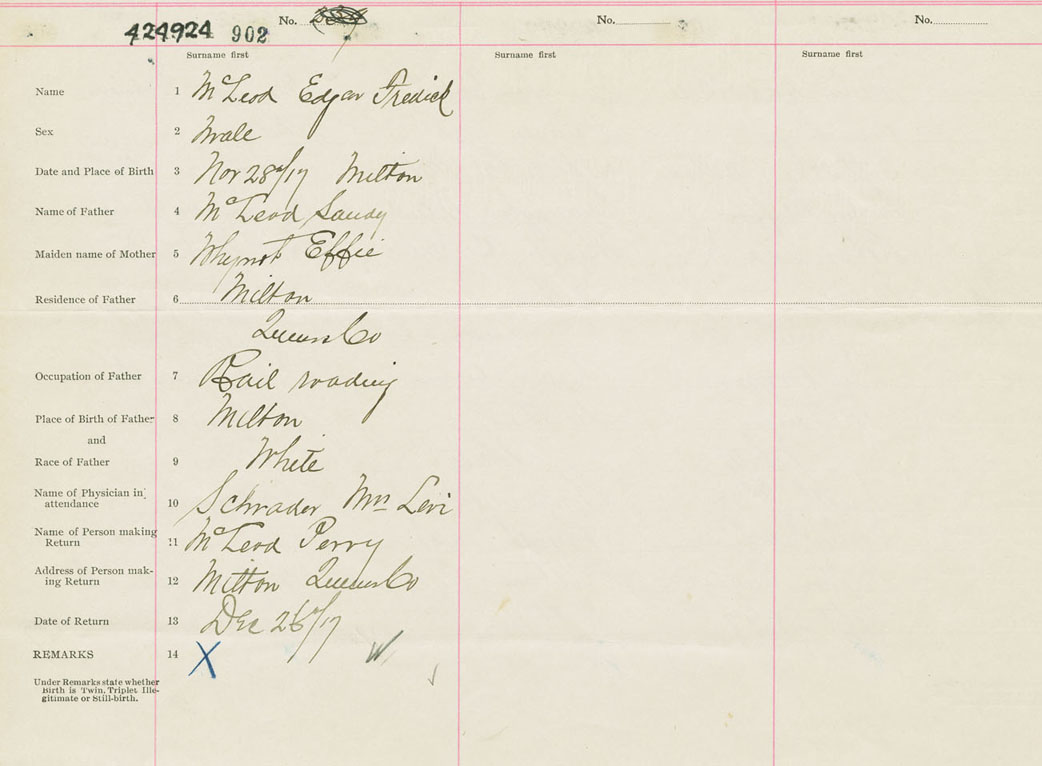 No. No. No.
424924 902
Surname first Surname first Surname first
Name 1 McLeod Edgar Fredick
Sex 2 Male
Date and Place of Birth 3 Nov 28th/17 Milton
Name of Father 4 McLeod Sandy
Maiden name of Mother 5 Whynot Effie
Residence of Father 6 Milton
Queens Co
Occupation of Father 7 Rail roading
Place of Birth of Father 8 Milton
and
Race of Father 9 White
Name of Physician in
attendance 10 Schrader Mrs Levi
Name of Person making
Return 11 McLeod Perry
Address of Person mak-
ing Return 12 Milton Queens Co
Date of Return 13 Dec 26th/17
REMARKS 14 X W
Under Remarks state whether
Birth is Twin, Triplet Ille-
gitimate or Still-birth.